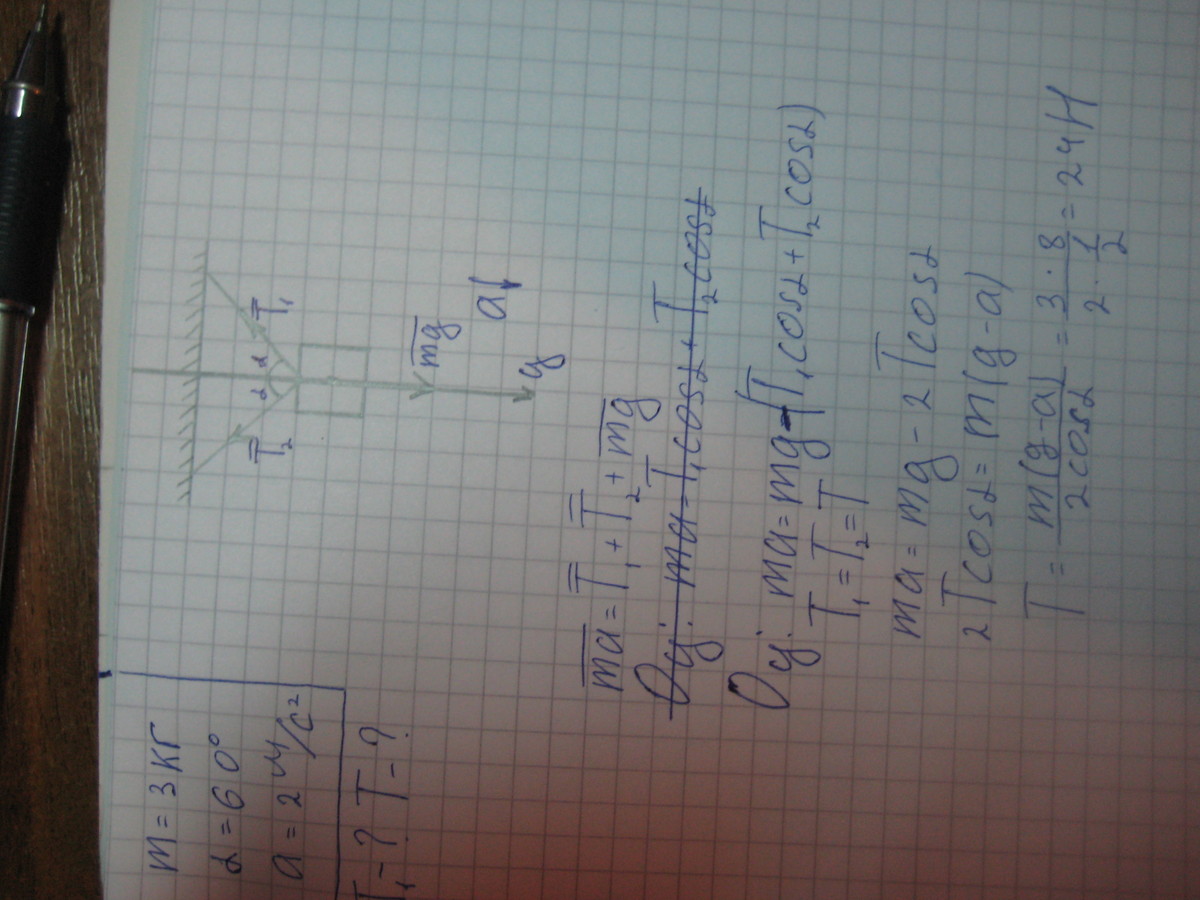 m = 3 кг
α = 60°
a = 2 м/с²
T₁ - ? T - ?
T̅₂ α α T̅₁
m̅g̅
a
y
m̅a̅ = T̅₁ + T̅₂ + m̅g̅
Oy: ma = T₁cosα + T₂cosα
Oy: ma = mg - (T₁cosα + T₂cosα)
T₁ = T₂ = T
ma = mg - 2Tcosα
2Tcosα = m(g-a)
T = m(g-a)/2cosα = 3·8/2·1/2 = 24H